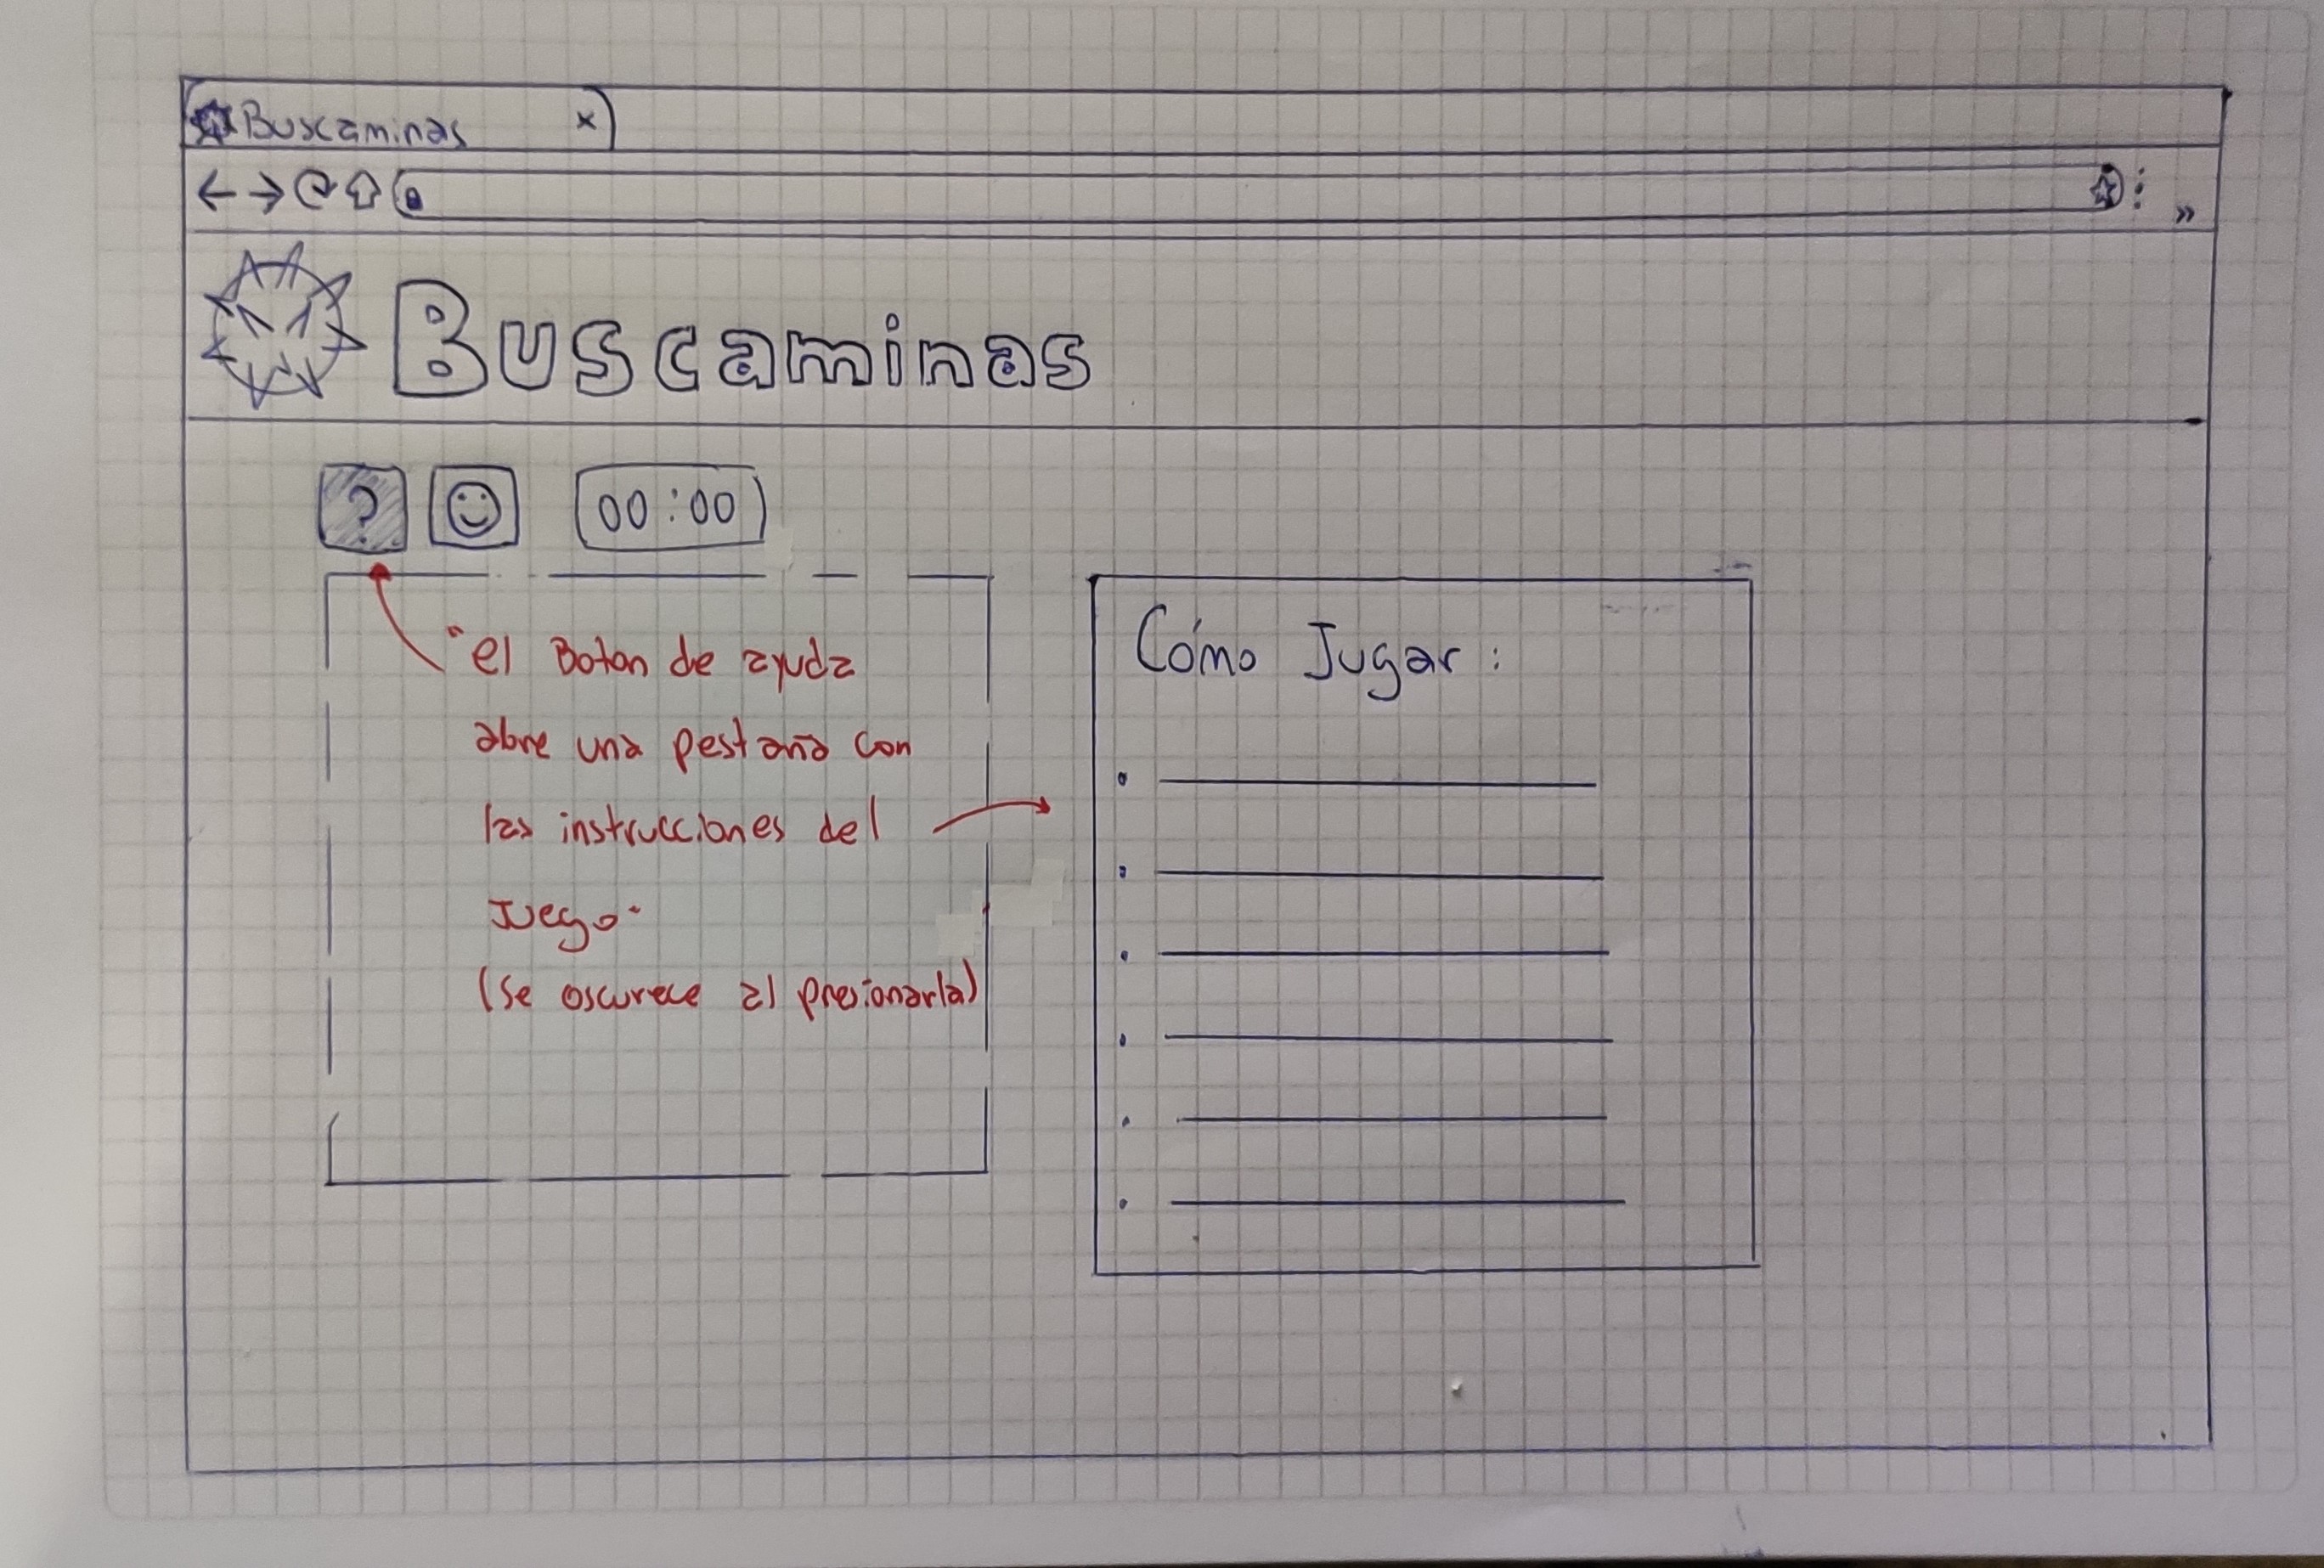 Buscaminas x
Buscaminas
? 00:00
"el Boton de ayuda
abre una pestaña con
las instrucciones del
Juego"
(Se oscurece al presionarla)
Cómo Jugar: